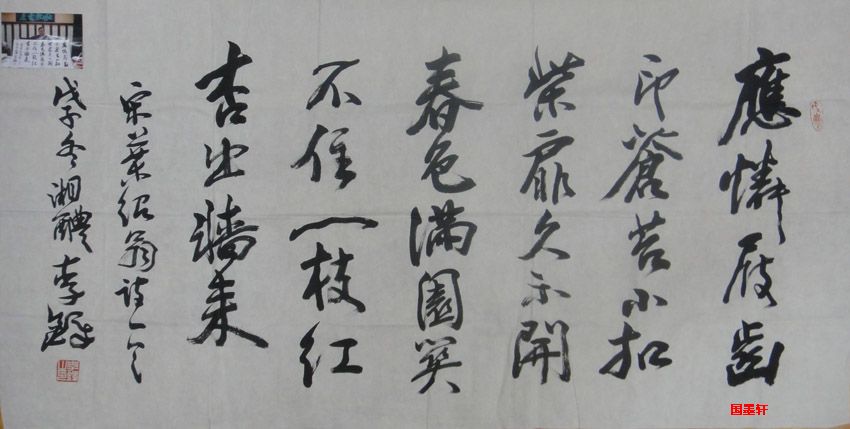 應憐屐齒
印蒼苔小扣
柴扉久不開
春色滿園關
不住一枝紅
杏出墻來
宋葉紹翁詩一首
戊子冬湘醴李鐸
国墨轩